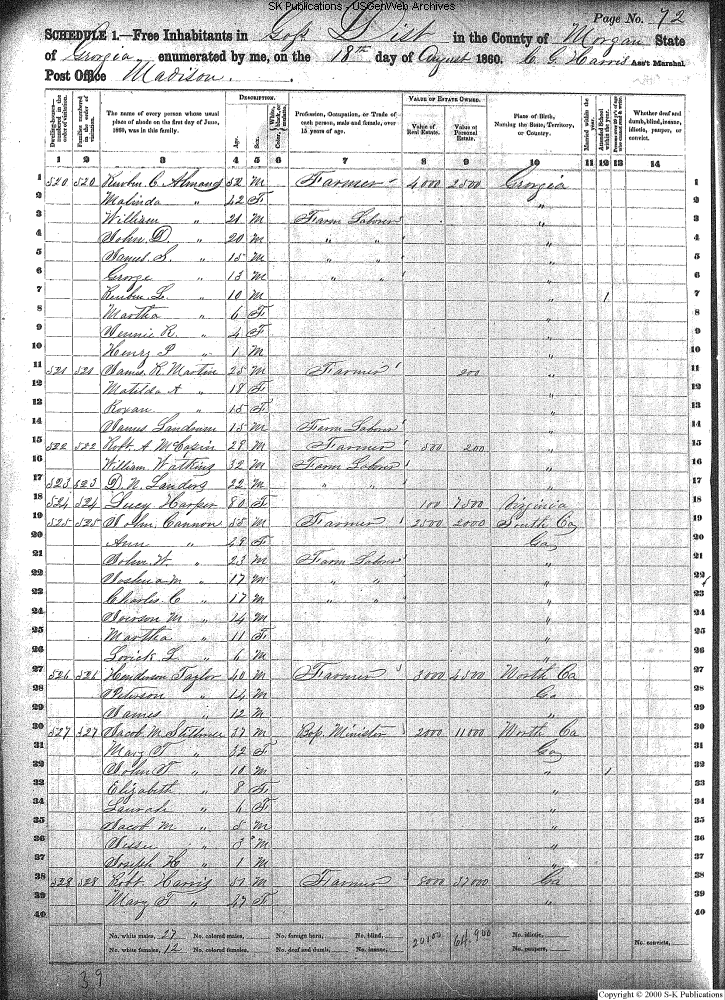 SK Publications - USGenWeb Archives
Page No. 72
SCHEDULE 1.—Free Inhabitants in Goss Dist in the County of Morgan State
of Georgia enumerated by me, on the 18th day of August 1860. C. G. Harris Ass't Marshal.
Post Office Madison.
Dwelling-houses—numbered in the order of visitation.
Families numbered in the order of visitation.
The name of every person whose usual place of abode on the first day of June, 1860, was in this family.
DESCRIPTION.
Age.
Sex.
Color, White, black, or mulatto.
Profession, Occupation, or Trade of each person, male and female, over 15 years of age.
VALUE OF ESTATE OWNED.
Value of Real Estate.
Value of Personal Estate.
Place of Birth, Naming the State, Territory, or Country.
Married within the year.
Attended School within the year.
Whether deaf and dumb, blind, insane, idiotic, pauper, or convict.
1 2 3 4 5 6 7 8 9 10 11 12 13 14
1 520 520 Reuben C. Almand 52 M Farmer 4000 2500 Georgia 1
2 Malinda " 42 F " 2
3 William " 21 M Farm Laborer " 3
4 John D. " 20 M " " " 4
5 James S. " 15 M " " " 5
6 George " 13 M " " " 6
7 Reuben L. " 10 M " 1 7
8 Martha " 6 F " 8
9 R. " 4 F " 9
10 Henry P. " 1 M " 10
11 521 521 James R. Martin 25 M Farmer 200 " 11
12 Matilda A " 18 F " 12
13 Roxan " 15 F " 13
14 James Landrum 15 M Farm Laborer " 14
15 522 522 Robt. A. 29 M Farmer 500 200 " 15
16 William Watkins 32 M Farm Laborer " 16
17 523 523 D. N. Landers 22 M " " " 17
18 524 524 Lucy Harper 80 F 100 7500 Virginia 18
19 525 525 John Cannon 55 M Farmer 2500 2000 South Ca 19
20 Ann " 29 F Ga 20
21 John W. " 23 M Farm Laborer " 21
22 Joshua M " 17 M " " " 22
23 Charles C " 17 M " " " 23
24 Iverson M " 14 M " 24
25 Martha " 11 F " 25
26 Lorick L. " 6 M " 26
27 526 526 Henderson Taylor 40 M Farmer 3000 4500 North Ca 27
28 " 14 M Ga 28
29 James " 12 M " 29
30 527 527 Jacob M. 37 M Bap. Minister 2000 11000 North Ca 30
31 Mary F. " 32 F Ga 31
32 John T " 10 M " 1 32
33 Elizabeth " 8 F " 33
34 " 6 F " 34
35 Jacob M " 5 M " 35
36 Jesse " 3 M " 36
37 Joseph H " 1 M " 37
38 528 528 Robt Harris 51 M Farmer 8000 37000 Ga 38
39 Mary F " 47 F " 39
40 40
No. white males, 27 No. colored males, No. foreign born, No. blind, No. idiotic,
No. white females, 12 No. colored females, No. deaf and dumb, No. insane, No. paupers, No. convicts,
20100 64,900
39
Copyright © 2000 S-K Publications